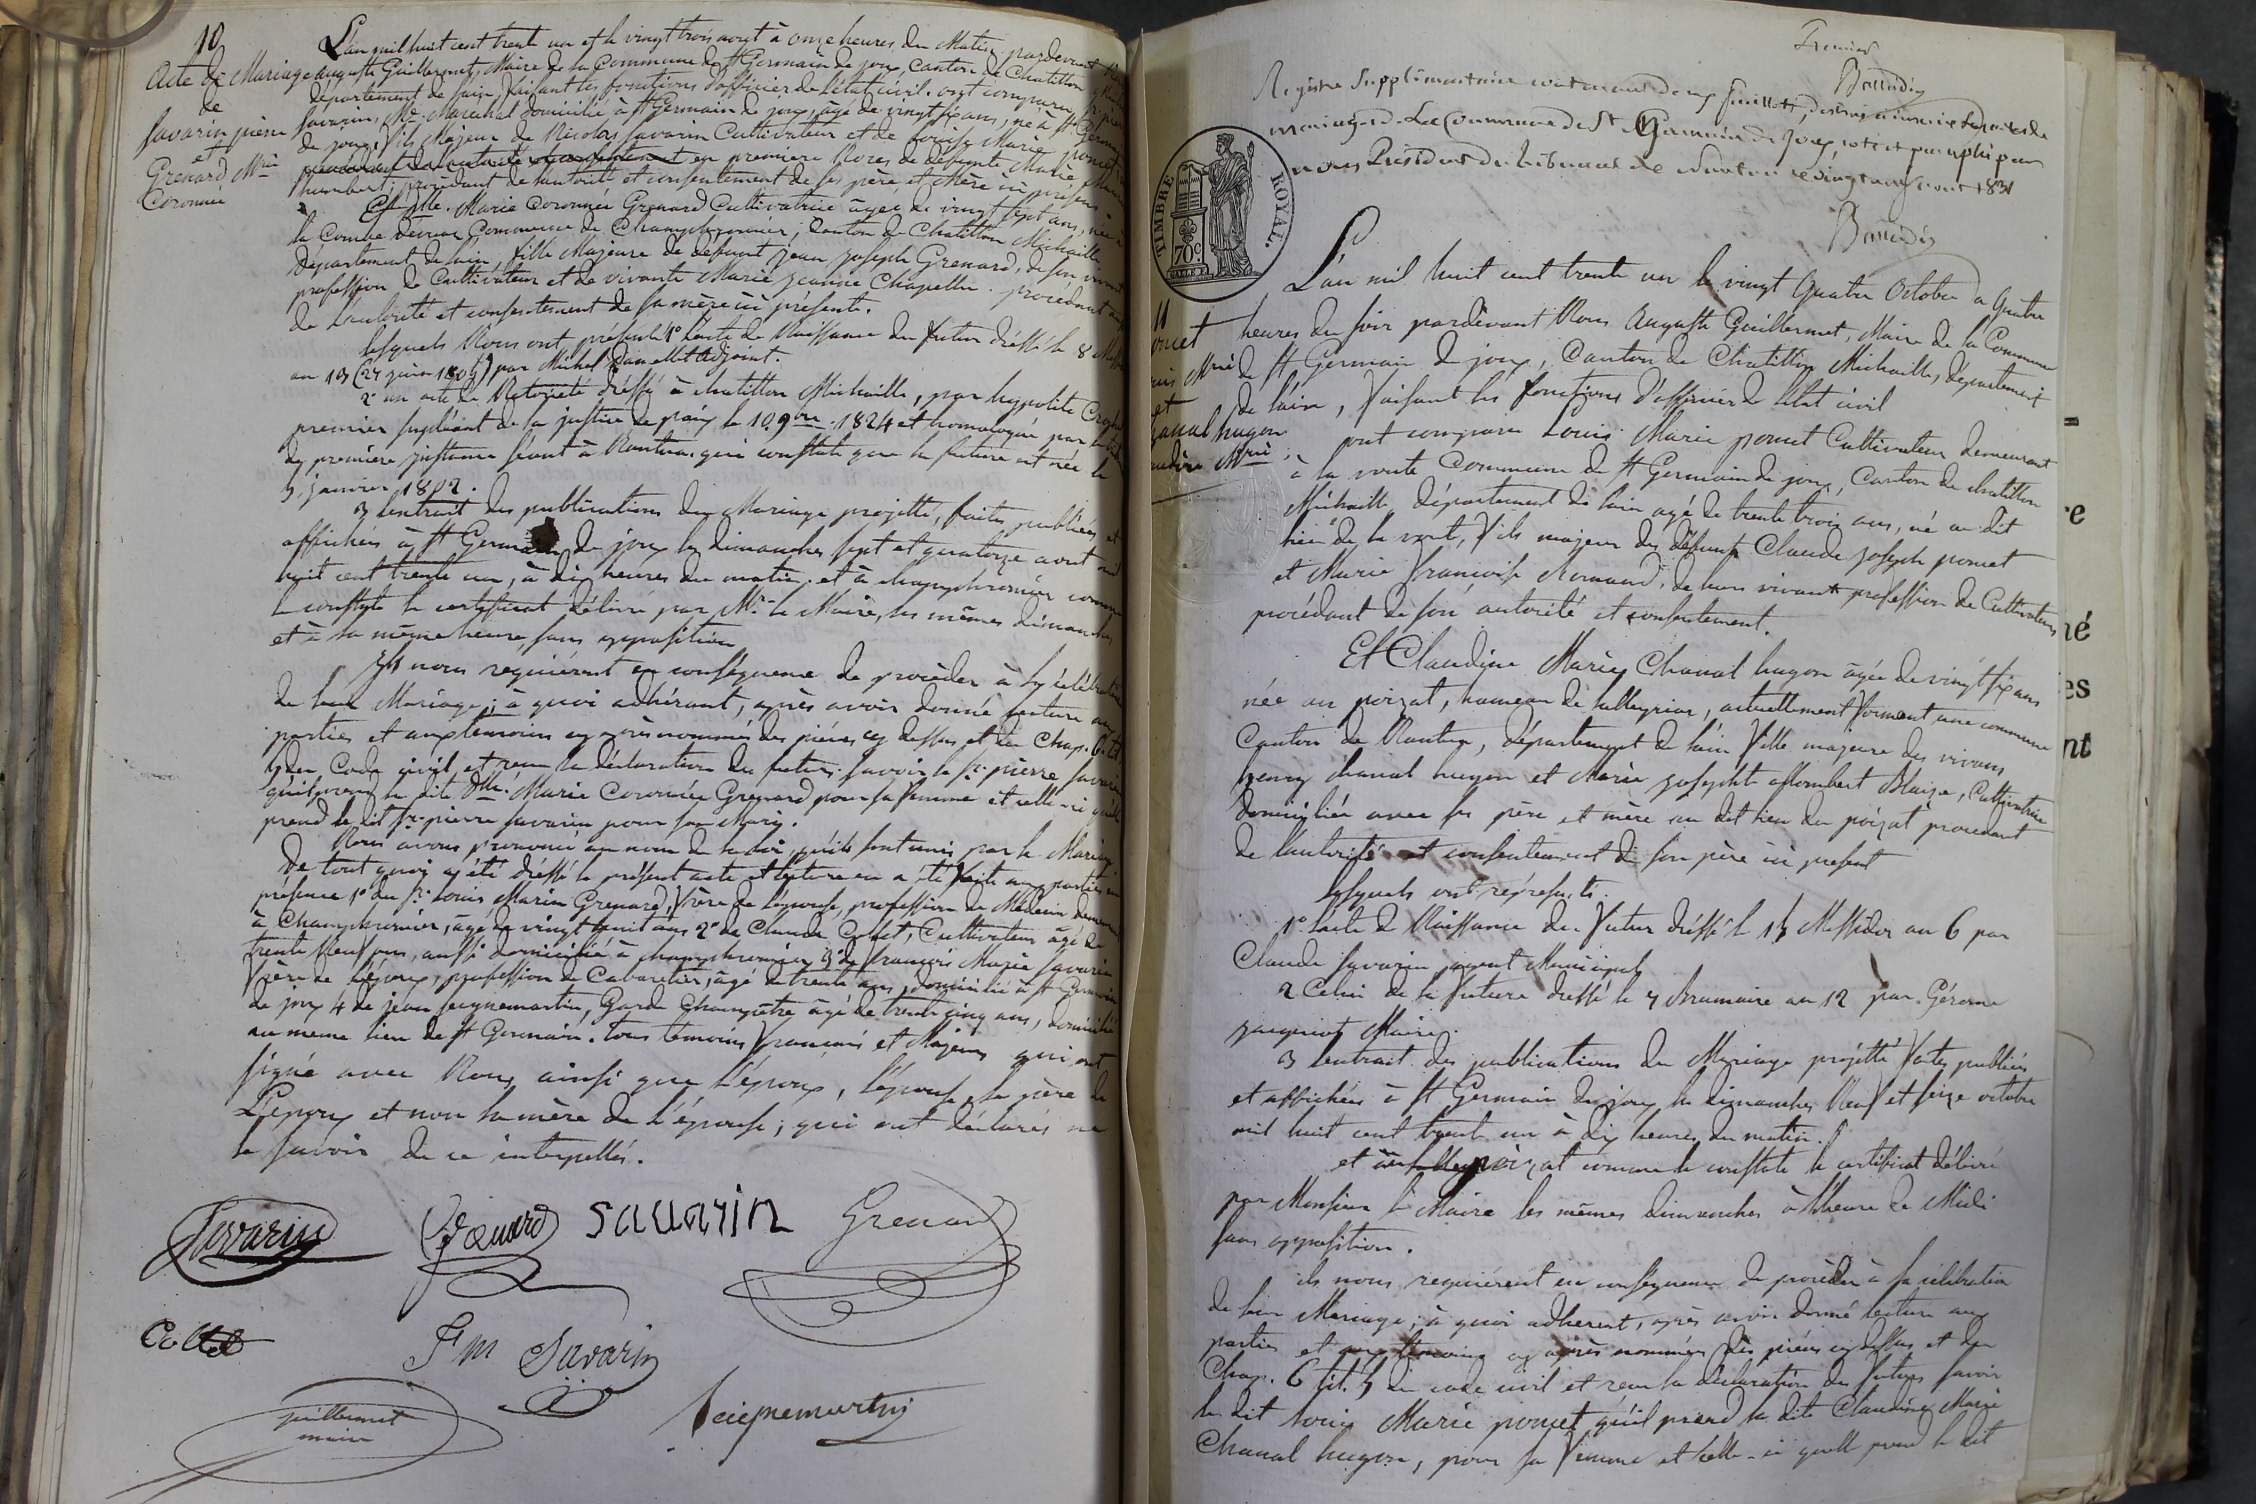 10
Acte de Mariage
de
Savarin pierre
et
Grenard Mrie
Coronnée
L'an mil huit cent trente un et le vingt trois aout à onze heures du Matin pardevant
auguste Guillermet, Maire de la Commune de St Germain de joux, Canton de Chatillon
département de l'ain, faisant les fonctions d'officier de l'état civil. ont comparu
Savarin, Me Marechal domicilié à St Germain de joux, âgé de vingt six ans, né à St Germain
de joux, fils Majeur de Nicolas Savarin Cultivateur et de Marie poncet
en premiere Noces de defunte Marie
humbert, procédant de l'autorité et consentement de ses père et Mère ici présens.
Et Dlle. Marie Coronnée Grenard Cultivatrice âgée de vingt sept ans, née à
la Combe Commune de Champfromier, Canton de Chatillon Michaille
département de l'ain, fille Majeure de defunt jean joseph Grenard, de son vivant
profession de Cultivateur et de vivante Marie jeanne Chapelle. procédant
de l'autorité et consentement de sa mère ici présente.
lesquels Nous ont présenté 1º l'acte de Naissance du futur dressé le 8
an 13 (27 juin 1805) par Michel adjoint.
2º un acte de Notoriété dressé à chatillon Michaille, par hyppolite
premier supléant de la justice de paix le 10 9bre. 1824 et homologué par le
de première instance séant à Nantua. qui constate que la future est née le
3 janvier 1802.
3 l'extrait des publications du Mariage projetté, faites, publiées et
affichées à St Germain de joux les dimanches sept et quatorze aout mil
huit cent trente un, à dix heures du matin. et à champfromier comme
le constate le certificat délivré par Mr. le Maire, les mêmes dimanches
et à la même heure, sans opposition
Ils nous requièrent en conséquence de procéder à la célébration
de leur Mariage; à quoi adhérant, après avoir donné lecture aux
parties et aux témoins cy après nommés des pièces cy dessus et du Chap. 6
du Code civil et reçu la déclaration des futurs. savoir le sr. pierre Savarin
qu'il prend la dite Dlle. Marie Coronnée Grenard pour sa femme et celle-ci qu'elle
prend le dit sr. pierre Savarin pour son Mary.
Nous avons prononcé au nom de la loi, qu'ils sont unis par le Mariage
De tout quoi a été dréssé le présent acte et lecture en a été faite aux parties en
présence 1º du sr. Louis Marie Grenard, frère de l'épouse, profession de Médecin demeurant
à Champfromier, âgé de vingt huit ans 2º de Claude Collet, Cultivateur âgé de
trente neuf ans, aussi domicilié à champfromier 3º de françois Marie Savarin
frère de l'époux, profession de Cabaretier, âgé de trente ans, domicilié à St Germain
de joux 4 de jean seignemartin, Garde Champêtre âgé de trente cinq ans, domicilié
au meme lieu de St Germain. tous témoins français et Majeurs qui ont
signé avec Nous ainsi que l'époux, l'épouse, le père de
L'époux et non la mère de l'épouse; qui ont déclarés ne
le savoir de ce interpellés.
Savarin Grenard Savarin Grenard
Collet F M Savarin
guillermet
maire
Seignemartin
Premier
Registre Supplémentaire contenant deux feuillets, destiné à inscrire les actes de
mariage de La Commune de St Germain de Joux, coté et paraphé par
nous Président du tribunal de Nantua le vingt aout 1831
TIMBRE ROYAL.
70c
11
poncet
Louis Mrie
et
Chanal hugon
Claudine Mrie
L'an mil huit cent trente un le vingt quatre Octobre a quatre
heures du soir pardevant Nous Auguste Guillermet, Maire de la Commune
de St Germain de joux, Canton de Chatillon Michaille, département
de l'ain, faisant les fonctions d'officier de l'état civil
ont comparu Louis Marie poncet Cultivateur demeurant
à la voute Commune de St Germain de joux, Canton de chatillon
Michaille, département de l'ain agé de trente trois ans, né au dit
lieu de la vout, fils majeur des défunts Claude joseph poncet
et Marie françoise, de leurs vivants profession de Cultivateurs
procédant de son autorité et consentement.
Et Claudine Marie Chanal hugon âgée de vingt six ans
née au poizat, hameau de lalleyriat, actuellement formant une commune
Canton de Nantua, département de l'ain fille majeure des vivans
henry chanal hugon et Marie josephte allombert Blaize, Cultivatrice
domiciliée avec ses père et mère au dit lieu du poizat procédant
de l'autorité et consentement de son père ici présent
lesquels ont représenté.
1º l'acte de Naissance du futur dréssé le 13 Messidor an 6 par
Claude Savarin agent Municipal
2 Celui de la future dressé le 4 Brumaire an 12 par Gérome
jacquiot Maire.
3 l'extrait des publications du Mariage projetté faites, publiées
et affichées à St Germain de joux les dimanches Neuf et seize octobre
mil huit cent trente un à dix heures du matin.
et au poizat comme le constate le certificat délivré
par Monsieur le Maire les mêmes dimanches à l'heure de Midi
sans opposition.
ils nous requièrent en conséquence de procéder à la célébration
de leur Mariage; à quoi adhérent, après avoir donné lecture aux
parties et aux témoins cy après nommés des pièces cy dessus et du
Chap. 6 tit. 5 du code civil et reçu la déclaration des futurs savoir
le dit Louis Marie poncet qu'il prend la dite Claudine Marie
Chanal hugon, pour sa femme et celle-ci qu'elle prend le dit